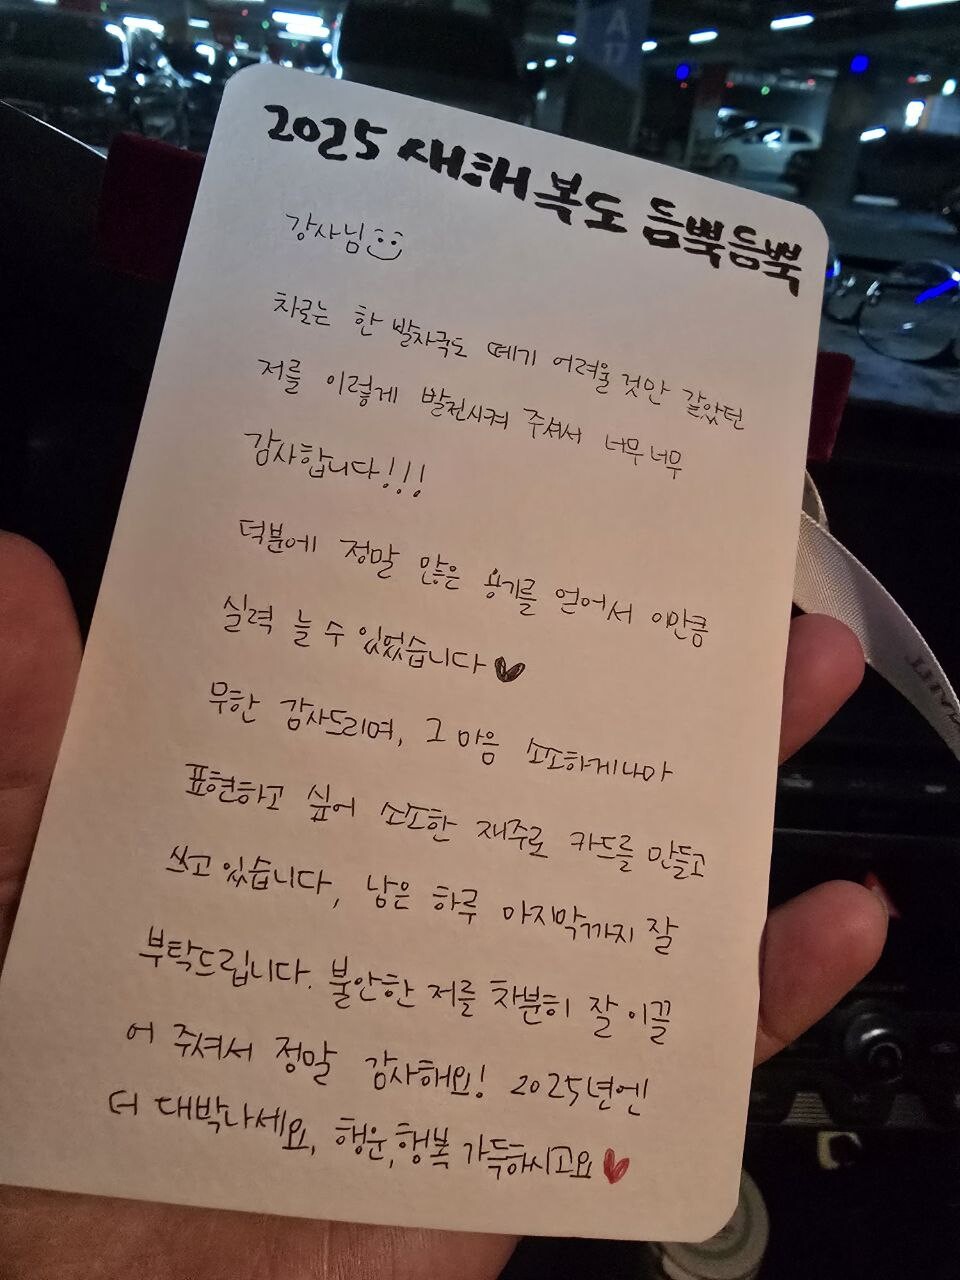 2025 새해 복도 듬뿍듬뿍
강사님
차로는 한 발자국도 떼기 어려울 것만 같았던
저를 이렇게 발전시켜 주셔서 너무너무
감사합니다!!!
덕분에 정말 많은 용기를 얻어서 이만큼
실력 늘 수 있었습니다♥
무한 감사드리며, 그 마음 소소하게나마
표현하고 싶어 소소한 재주로 카드를 만들고
쓰고 있습니다, 남은 하루 마지막까지 잘
부탁드립니다. 불안한 저를 차분히 잘 이끌
어 주셔서 정말 감사해요! 2025년엔
더 대박나세요, 행운,행복 가득하시고요♥
A
17